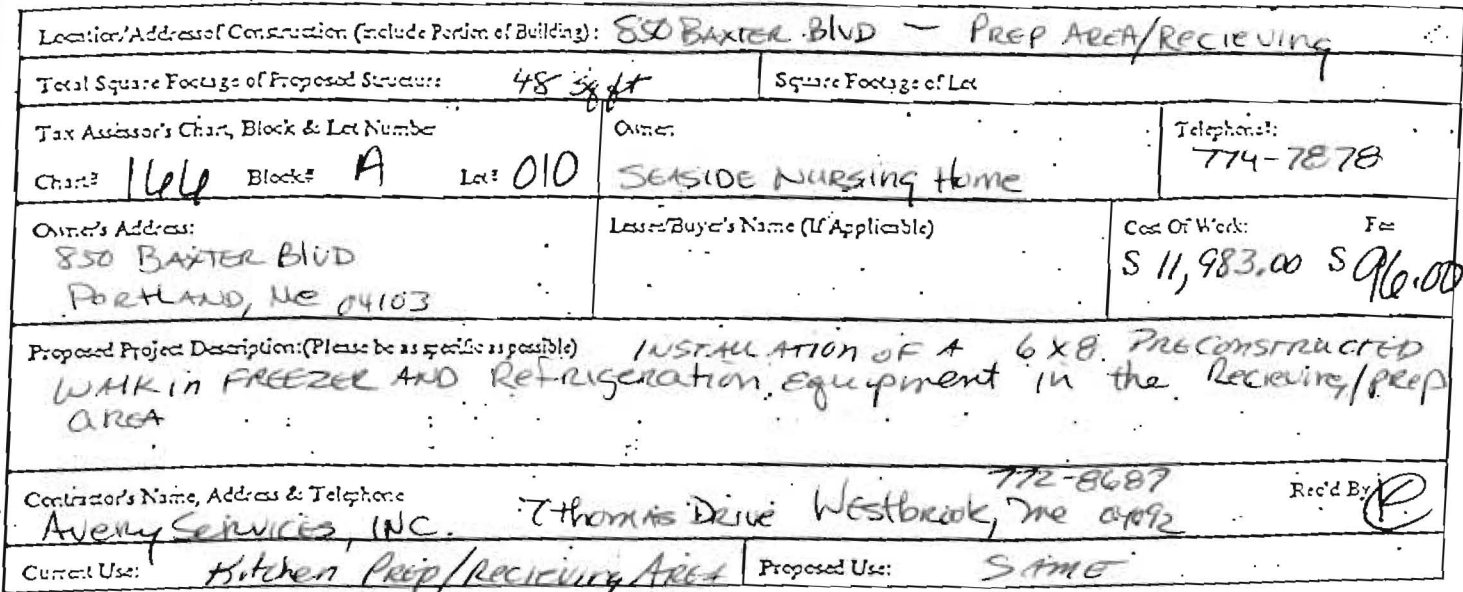 Location/Address of Construction (include Portion of Building): 850 BAXTER BLVD — PREP AREA/RECIEVING
Total Square Footage of Proposed Structure 48 sq ft Square Footage of Lot
Tax Assessor's Chart, Block & Lot Number Owner: Telephone#:
Chart# 166 Block# A Lot# 010 SEASIDE NURSING Home 774-7878
Owner's Address: Lessee/Buyer's Name (If Applicable) Cost Of Work: Fee
850 BAXTER BLVD $ 11,983.00 $ 96.00
PORTLAND, ME 04103
Proposed Project Description:(Please be as specific as possible) INSTALLATION OF A 6X8 PRECONSTRUCTED
WALK in FREEZER AND Refrigeration Equipment in the Recieving/prep
area
772-8687
Contractor's Name, Address & Telephone Rec'd By
Avery Services, INC. 7 Thomas Drive Westbrook, Me 04092
Current Use: Kitchen Prep/Recieving Area Proposed Use: SAME